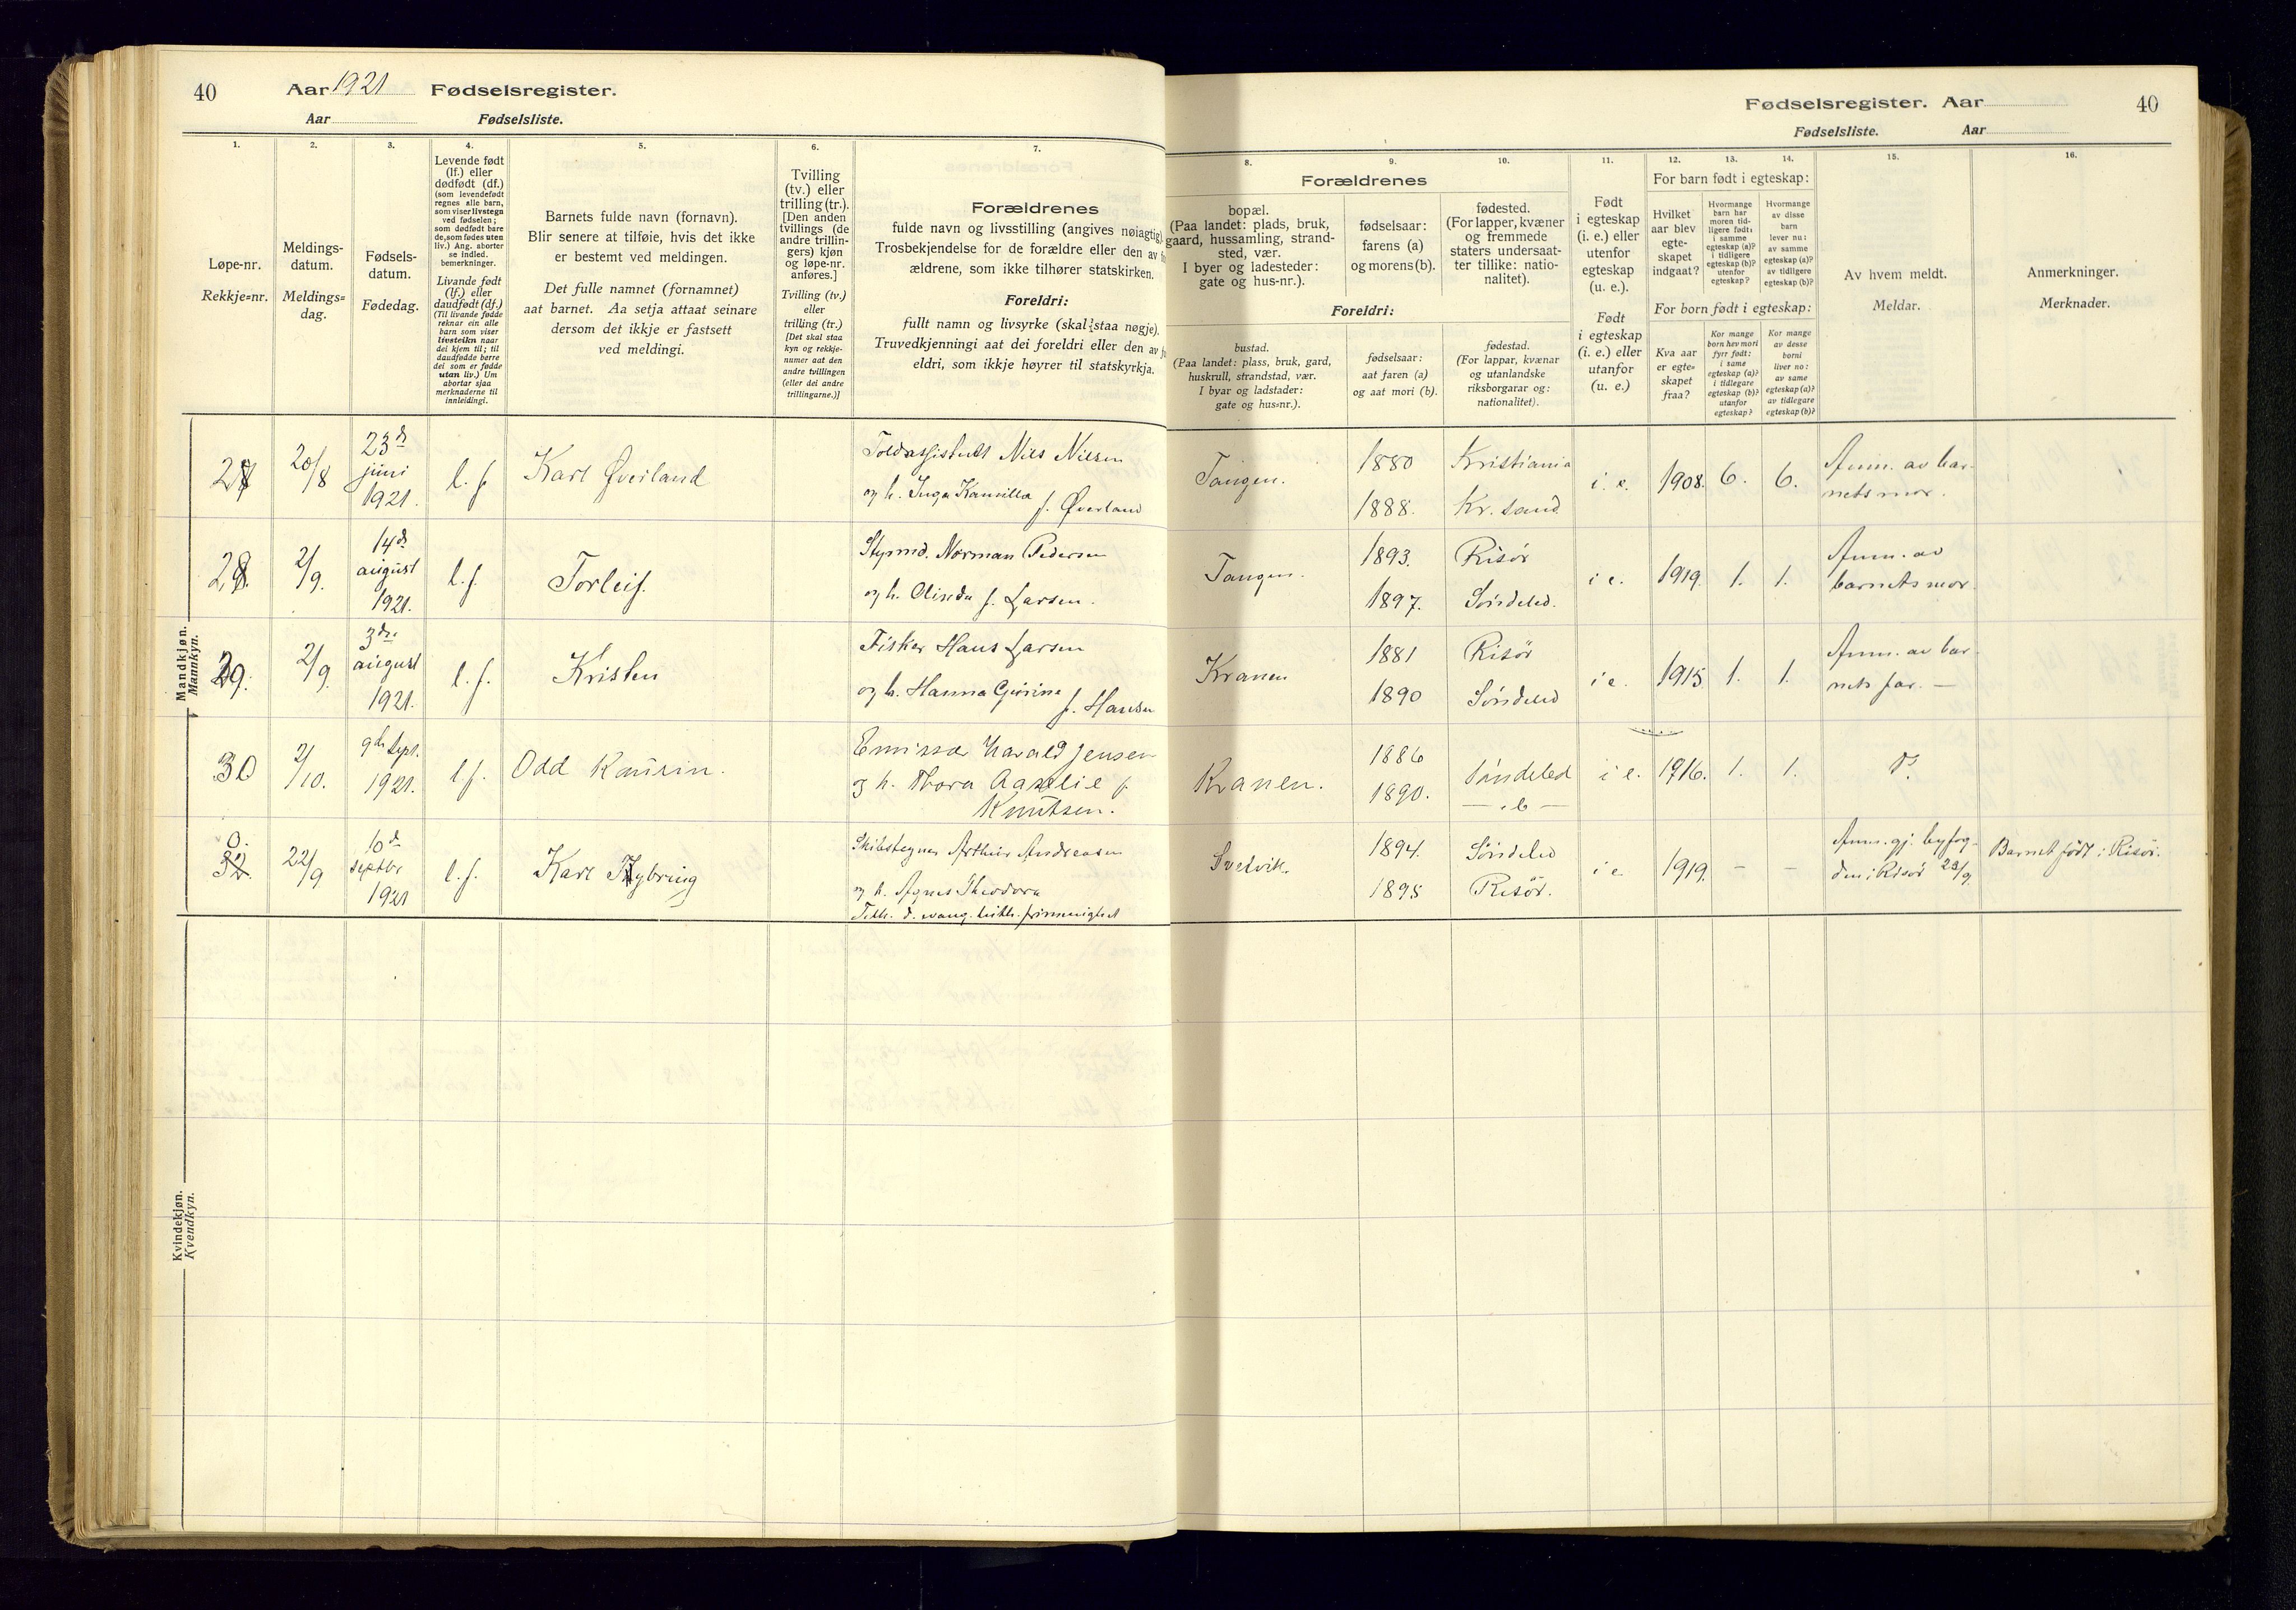 40
Aar 1921 Fødselsregister.
Aar Fødselsliste.
Fødselsregister. Aar
Fødselsliste. Aar
40
1.
Løpe-nr.
Rekkje=nr.
2.
Meldings-
datum.
Meldings=
dag.
3.
Fødsels-
datum.
Fødedag.
4.
Levende født
(lf.) eller
dødfødt (df.)
(som levendefødt
regnes alle barn,
som viser livstegn
ved fødselen;
som dødfødt bare
de, som fødes uten
liv.) Ang. aborter
se indled.
bemerkninger.
Livande født
(lf.) eller
daudfødt (df.)
(Til livande fødde
reknar ein alle
barn som viser
livsteikn naar
dei kjem til; til
daudfødde berre
dei som er fødde
utan liv.) Um
abortar sjaa
merknaderne til
innleidingi.
5.
Barnets fulde navn (fornavn).
Blir senere at tilføie, hvis det ikke
er bestemt ved meldingen.
Det fulle namnet (fornamnet)
aat barnet. Aa setja attaat seinare
dersom det ikkje er fastsett
ved meldingi.
6.
Tvilling
(tv.) eller
trilling (tr.).
[Den anden
tvillings (de
andre trillin-
gers) kjøn
og løpe-nr.
anføres.]
Tvilling (tv.)
eller
trilling (tr.)
[Det skal staa
kyn og rekkje-
numer aat den
andre tvillingen
(eller dei andre
trillingarne.)]
7.
Forældrenes
fulde navn og livsstilling (angives nøiagtig).
Trosbekjendelse for de forældre eller den av
ældrene, som ikke tilhører statskirken.
Foreldri:
fullt namn og livsyrke (skal staa nøgje).
Truvedkjenningi aat dei foreldri eller den av
eldri, som ikkje høyrer til statskyrkja.
Forældrenes
8.
bopæl.
(Paa landet: plads, bruk,
gaard, hussamling, strand-
sted, vær.
I byer og ladesteder:
gate og hus-nr.).
9.
fødselsaar:
farens (a)
og morens (b).
10.
fødested.
(For lapper, kvæner
og fremmede
staters undersaat-
ter tillike: natio-
nalitet).
Foreldri:
bustad.
(Paa landet: plass, bruk, gard,
huskrull, strandstad, vær.
I byar og ladstader:
gate og hus=nr.).
fødselsaar:
aat faren (a)
og aat mori (b).
fødestad.
(For lappar, kvænar
og utanlandske
riksborgarar og:
nationalitet).
11.
Født
i egteskap
(i. e.) eller
utenfor
egteskap
(u. e.).
Født
i egteskap
(i. e.) eller
utanfor
(u. e.)
For barn født i egteskap:
12.
Hvilket
aar blev
egte-
skapet
indgaat?
13.
Hvormange
barn har
moren tid-
ligere født:
i samme
egteskap (a)?
i tidligere
egteskap (b)?
utenfor
egteskap?
14.
Hvormange
av disse
barn
lever nu:
av samme
egteskap (a)?
av tidligere
egteskap (b)?
For born født i egteskap:
Kva aar
er egte=
skapet
fraa?
Kor mange
born hev mori
fyrr født:
i same
egteskap (a)?
i tidlegare
egteskap (b)?
utanfor
egteskap?
Kor mange
av desse
borni
liver no:
av same
egteskap (a)?
av tidlegare
egteskap (b)?
15.
Av hvem meldt.
Meldar.
16.
Anmerkninger.
Merknader.
Mandkjøn.
Mannkyn.
27 20/8 23de juni 1921. l. f. Karl Øverland
Toldassistent Nils Nilsen
og h. Inga Kamilla
f. Øverland
Tangen. 1880 Kristiania
1888. Kr. sand.
i. e. 1908. 6. 6. Anm. av bar-
nets mor.
28. 2/9. 14de august 1921. l. f. Torleif.
Styrmd. Norman Pedersen
og h. Olinda f. Larsen.
Tangen. 1893. Risör
1897. Söndeled.
i e. 1919. 1. 1. Anm. av
barnets mor.
29. 2/9. 3die august 1921. l. f. Kristen
Fisker Hans Larsen
og h. Hanna Gurine
f. Hansen
Kranen 1881 Risör
1890 Söndeled
i e. 1915 1. 1. Anm. av bar-
nets far. —
30 2/10. 9de sept. 1921. l f. Odd Kaurin.
Emissær Harald Jensen
og h. Thora Aaselie f.
Knutsen.
Kranen. 1886 Söndeled
1890. — " —
i e. 1916. 1. 1. Do.
0.
32. 22/9 10de septbr 1921 l. f. Karl Nybring
Skibstegner Arthur Andreasen
og h. Agnes Theodora
Tilh. d. evang. luth. frimenighet
Svedvik. 1894. Söndeled
1895 Risör.
i e 1919. – – Anm. gj. byfog-
den i Risör 23/9. Barnet født i Risör.
Kvindekjøn.
Kvendkyn.